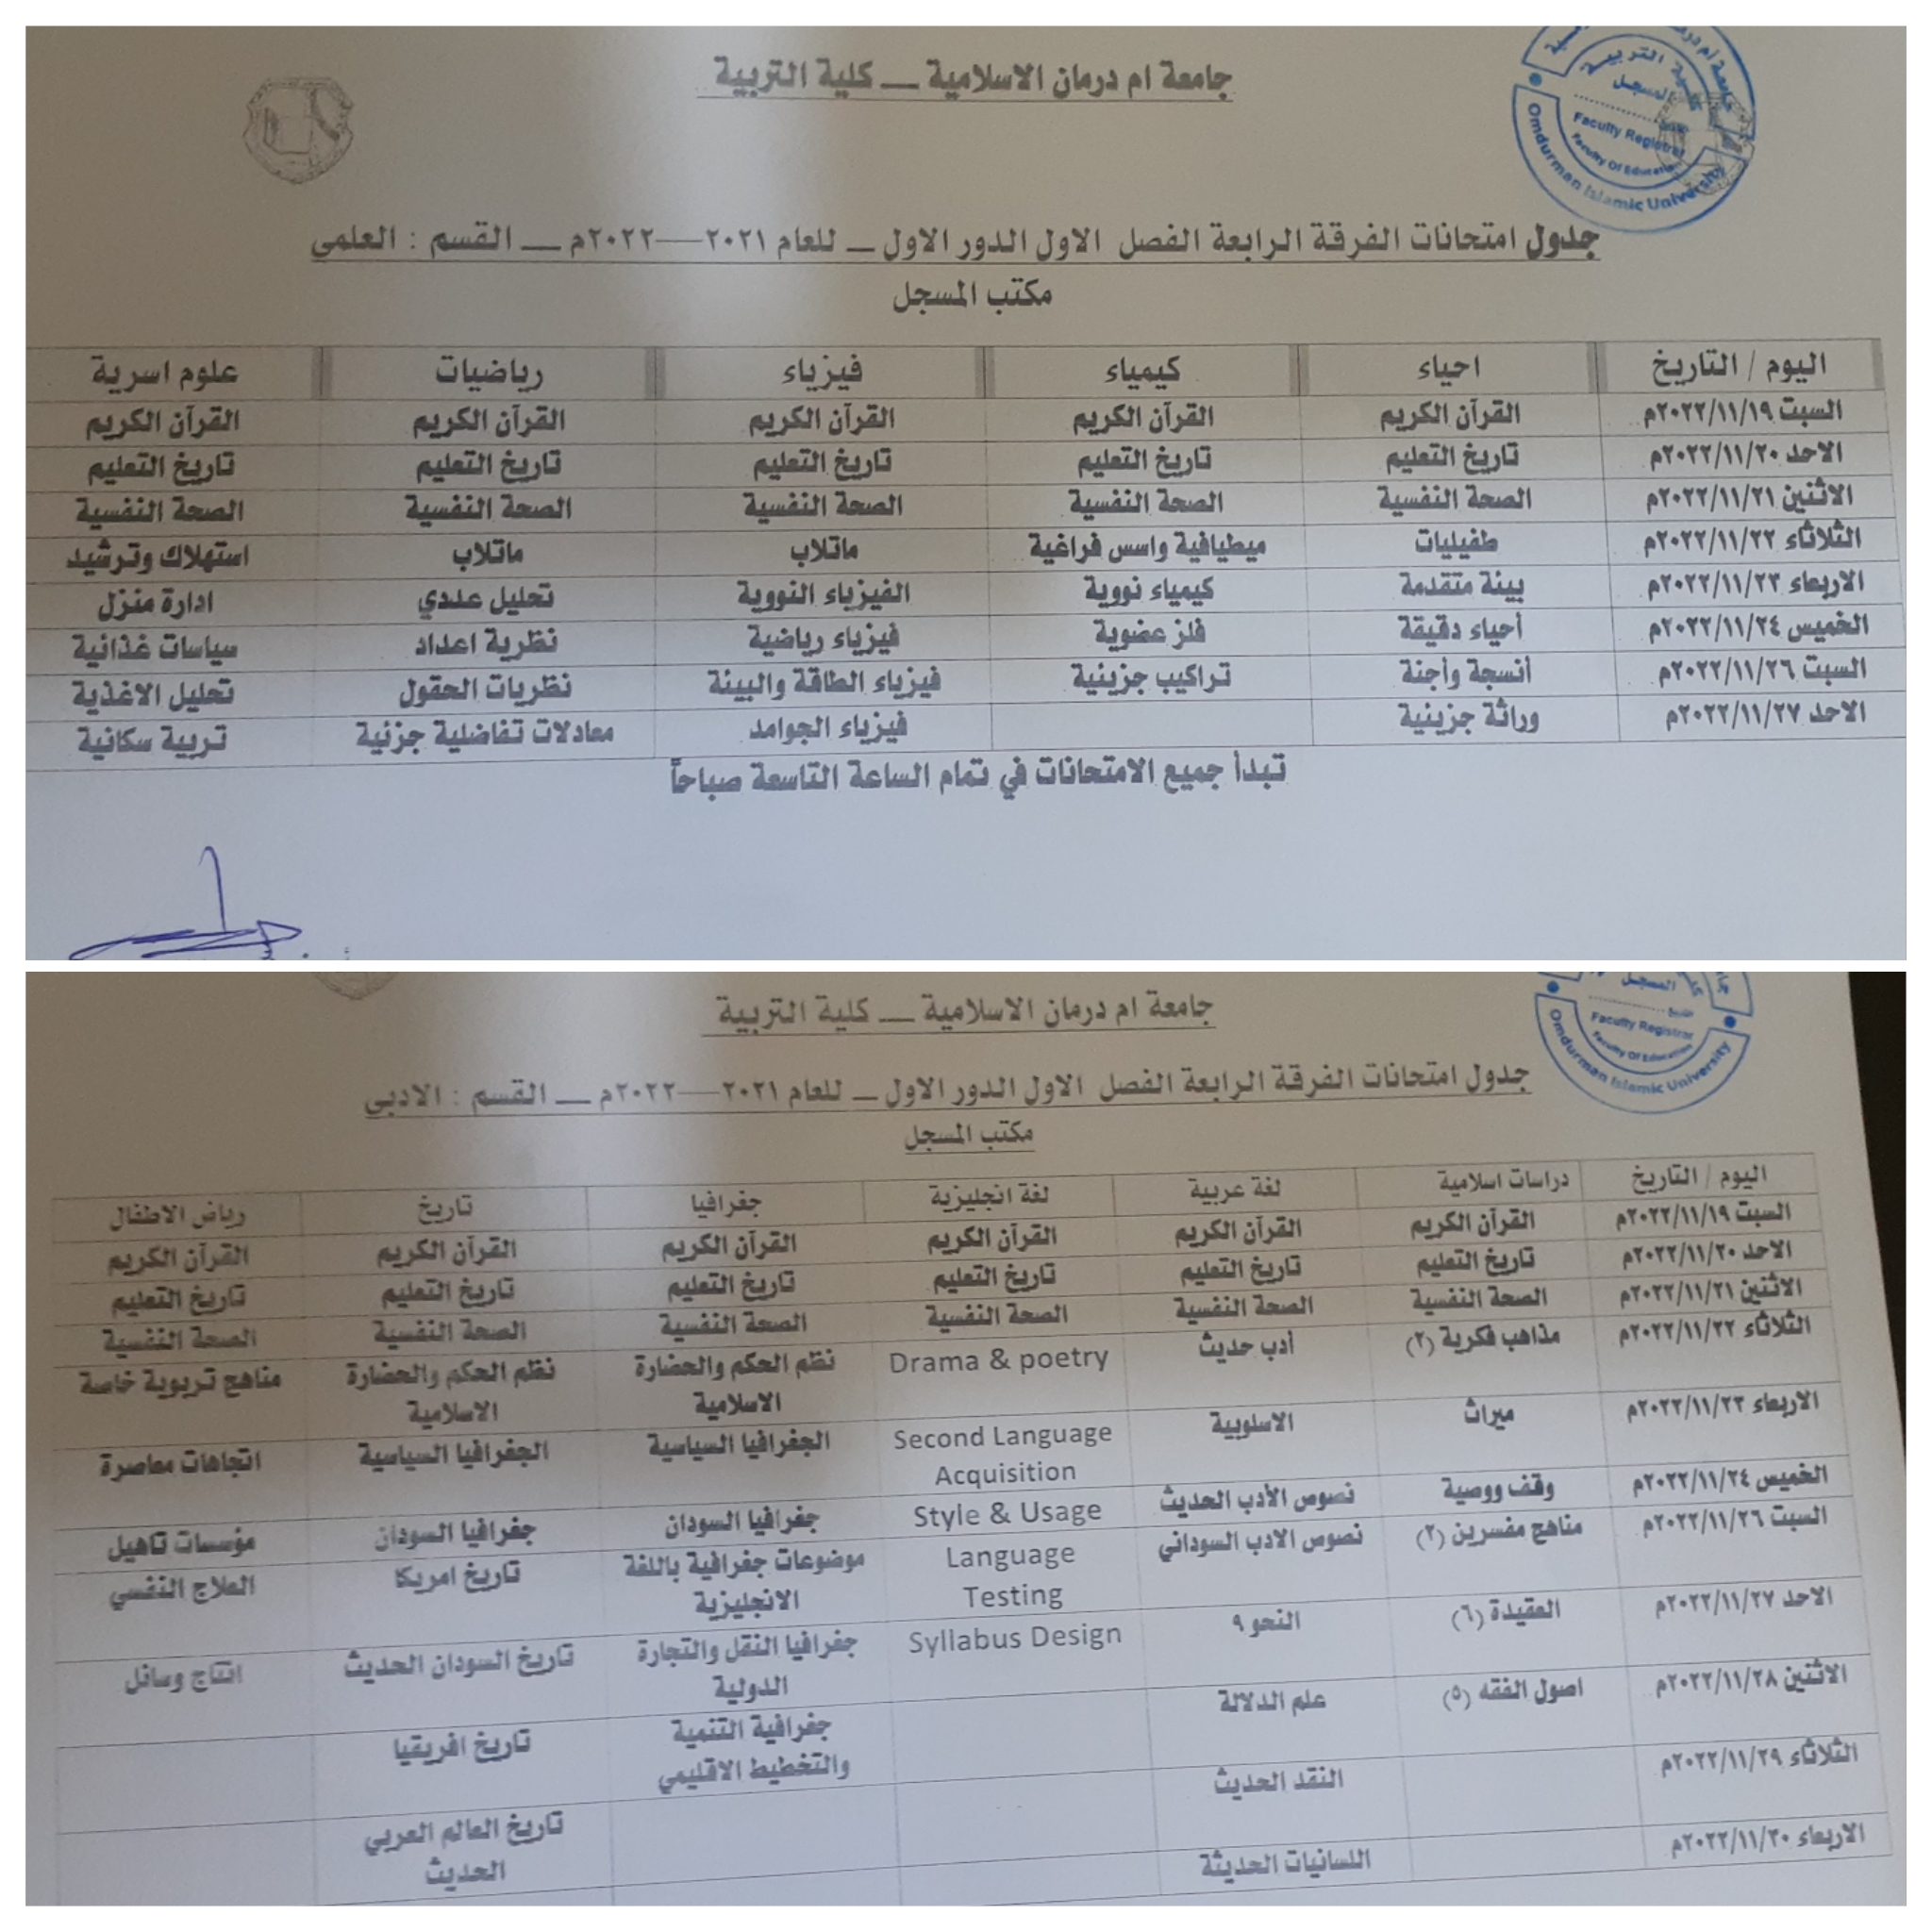 جامعة ام درمان الاسلامية — كلية التربية
كلية التربية
المسجل
Faculty Registrar
Faculty Of Education
Omdurman Islamic University
جدول امتحانات الفرقة الرابعة الفصل الاول الدور الاول — للعام ٢٠٢١—٢٠٢٢م — القسم : العلمي
مكتب المسجل
اليوم / التاريخ احياء كيمياء فيزياء رياضيات علوم اسرية
السبت ٢٠٢٢/١١/١٩م القرآن الكريم القرآن الكريم القرآن الكريم القرآن الكريم القرآن الكريم
الاحد ٢٠٢٢/١١/٢٠م تاريخ التعليم تاريخ التعليم تاريخ التعليم تاريخ التعليم تاريخ التعليم
الاثنين ٢٠٢٢/١١/٢١م الصحة النفسية الصحة النفسية الصحة النفسية الصحة النفسية الصحة النفسية
الثلاثاء ٢٠٢٢/١١/٢٢م طفيليات ميطيافية واسس فراغية ماتلاب ماتلاب استهلاك وترشيد
الاربعاء ٢٠٢٢/١١/٢٣م بيئة متقدمة كيمياء نووية الفيزياء النووية تحليل عددي ادارة منزل
الخميس ٢٠٢٢/١١/٢٤م أحياء دقيقة فلز عضوية فيزياء رياضية نظرية اعداد سياسات غذائية
السبت ٢٠٢٢/١١/٢٦م أنسجة وأجنة تراكيب جزيئية فيزياء الطاقة والبيئة نظريات الحقول تحليل الاغذية
الاحد ٢٠٢٢/١١/٢٧م وراثة جزيئية فيزياء الجوامد معادلات تفاضلية جزئية تربية سكانية
تبدأ جميع الامتحانات في تمام الساعة التاسعة صباحاً
جامعة ام درمان الاسلامية — كلية التربية
المسجل
Faculty Registrar
Faculty Of Education
Omdurman Islamic University
جدول امتحانات الفرقة الرابعة الفصل الاول الدور الاول — للعام ٢٠٢١—٢٠٢٢م — القسم : الادبي
مكتب المسجل
اليوم / التاريخ دراسات اسلامية لغة عربية لغة انجليزية جغرافيا تاريخ رياض الاطفال
السبت ٢٠٢٢/١١/١٩م القرآن الكريم القرآن الكريم القرآن الكريم القرآن الكريم القرآن الكريم القرآن الكريم
الاحد ٢٠٢٢/١١/٢٠م تاريخ التعليم تاريخ التعليم تاريخ التعليم تاريخ التعليم تاريخ التعليم تاريخ التعليم
الاثنين ٢٠٢٢/١١/٢١م الصحة النفسية الصحة النفسية الصحة النفسية الصحة النفسية الصحة النفسية الصحة النفسية
الثلاثاء ٢٠٢٢/١١/٢٢م مذاهب فكرية (٢) أدب حديث Drama & poetry نظم الحكم والحضارة نظم الحكم والحضارة مناهج تربوية خاصة
الاسلامية الاسلامية
الاربعاء ٢٠٢٢/١١/٢٣م ميراث الاسلوبية Second Language الجغرافيا السياسية الجغرافيا السياسية اتجاهات معاصرة
Acquisition
الخميس ٢٠٢٢/١١/٢٤م وقف ووصية نصوص الأدب الحديث Style & Usage جغرافيا السودان جغرافيا السودان مؤسسات تاهيل
السبت ٢٠٢٢/١١/٢٦م مناهج مفسرين (٢) نصوص الادب السوداني Language موضوعات جغرافية باللغة تاريخ امريكا العلاج النفسي
Testing الانجليزية
الاحد ٢٠٢٢/١١/٢٧م العقيدة (٦) النحو ٩ Syllabus Design جغرافيا النقل والتجارة تاريخ السودان الحديث انتاج وسائل
الدولية
الاثنين ٢٠٢٢/١١/٢٨م اصول الفقه (٥) علم الدلالة جغرافية التنمية تاريخ افريقيا
والتخطيط الاقليمي
الثلاثاء ٢٠٢٢/١١/٢٩م النقد الحديث تاريخ العالم العربي
الحديث
الاربعاء ٢٠٢٢/١١/٣٠م اللسانيات الحديثة